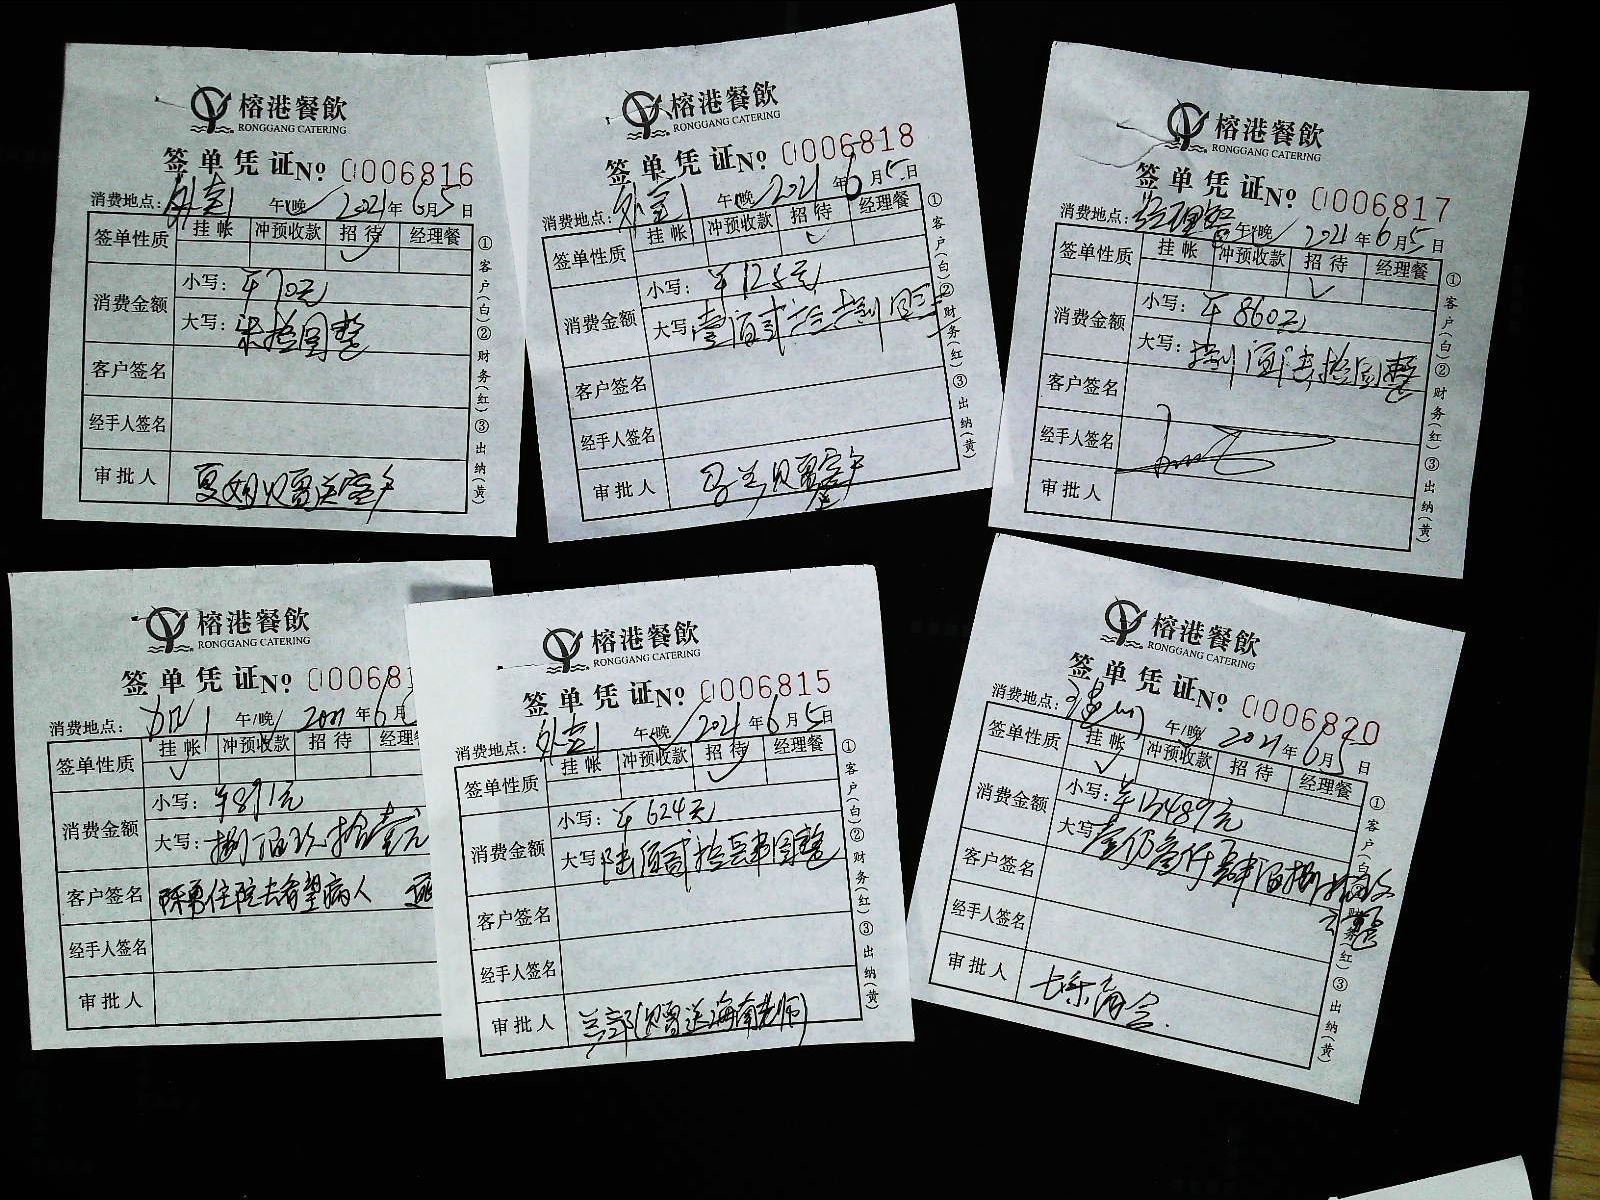 榕港餐飲
RONGGANG CATERING
签单凭证No 0006816
消费地点: 外卖1 午/晚 2021年6月5日
签单性质 挂帐 冲预收款 招待 经理餐
消费金额 小写: ¥70元
大写: 柒拾圆整
客户签名
经手人签名
审批人
①客户(白)②财务(红)③出纳(黄)
榕港餐飲
RONGGANG CATERING
签单凭证No 0006818
消费地点: 外卖1 午/晚 2021年6月5日
签单性质 挂帐 冲预收款 招待 经理餐
消费金额 小写: ¥128元
大写: 壹佰贰拾捌圆整
客户签名
经手人签名
审批人
①客户(白)②财务(红)③出纳(黄)
榕港餐飲
RONGGANG CATERING
签单凭证No 0006817
消费地点: 经理餐 午/晚 2021年6月5日
签单性质 挂帐 冲预收款 招待 经理餐
消费金额 小写: ¥860元
大写: 捌佰陆拾圆整
客户签名
经手人签名
审批人
①客户(白)②财务(红)③出纳(黄)
榕港餐飲
RONGGANG CATERING
签单凭证No 000681
消费地点: 午/晚 2021年6月
签单性质 挂帐 冲预收款 招待 经理
消费金额 小写: ¥891元
大写: 捌佰玖拾壹元
客户签名 陈勇住院去看望病人
经手人签名
审批人
榕港餐飲
RONGGANG CATERING
签单凭证No 0006815
消费地点: 外卖1 午/晚 2021年6月5日
签单性质 挂帐 冲预收款 招待 经理餐
消费金额 小写: ¥624元
大写: 陆佰贰拾肆圆整
客户签名
经手人签名
审批人 兰郭(兑酒送海南老师)
①客户(白)②财务(红)③出纳(黄)
榕港餐飲
RONGGANG CATERING
签单凭证No 0006820
消费地点: 午/晚 2021年6月5日
签单性质 挂帐 冲预收款 招待 经理餐
消费金额 小写: ¥13489元
大写: 壹万叁仟肆佰捌拾玖元整
客户签名
经手人签名
审批人
①客户(白)②财务(红)③出纳(黄)